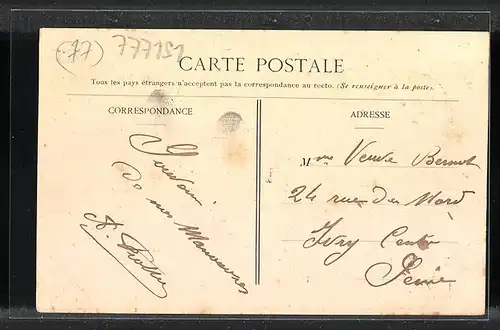 (77) 777151
CARTE POSTALE
Tous les pays étrangers n'acceptent pas la correspondance au recto. (Se renseigner à la poste).
CORRESPONDANCE
ADRESSE
Souvenir
De nos Manœuvres
A.
Mme Veuve Bernot
24 rue du Nord
Ivry Centre
Seine